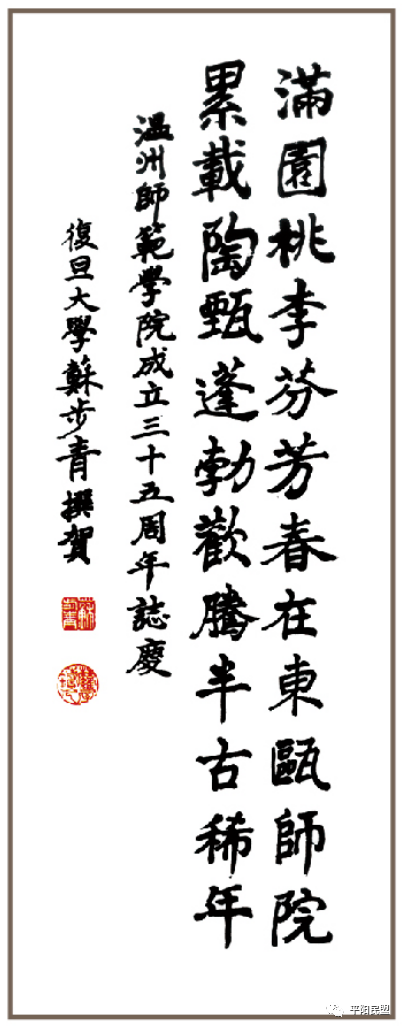 滿園桃李芬芳春在東甌師院
累載陶甄蓬勃歡騰半古稀年
温州師範學院成立三十五周年誌慶
復旦大學蘇步青撰賀
平阳民盟